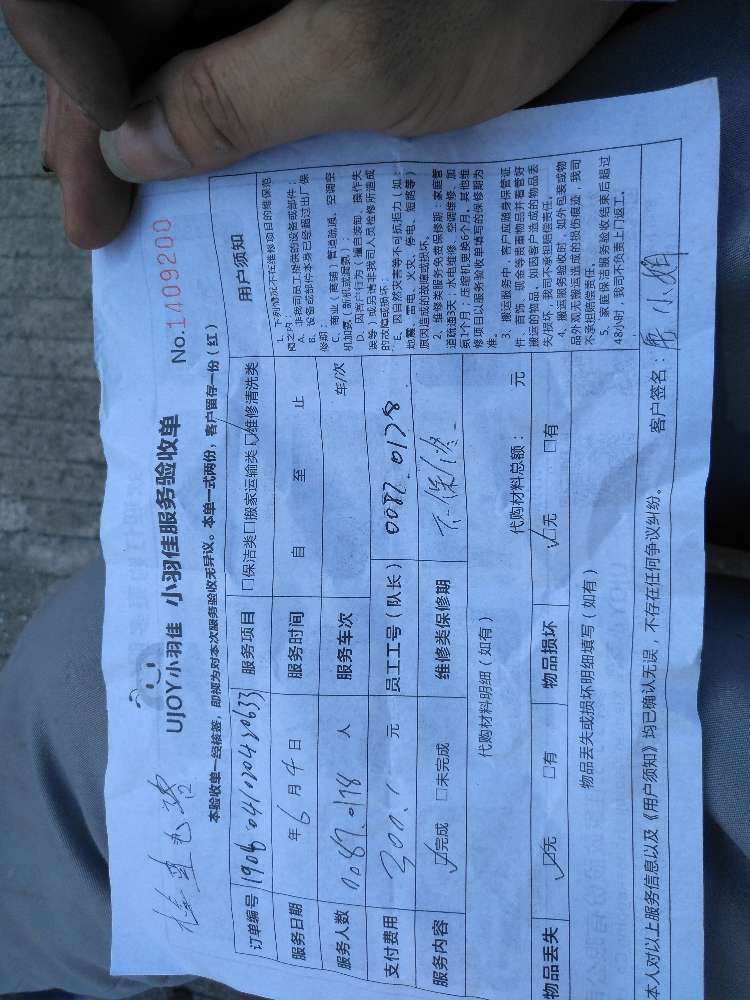 UJOY小羽佳 小羽佳服务验收单 No.1409200
本验收单一经核签，即视为对本次服务验收无异议。本单一式两份，客户留存一份（红）
订单编号 服务项目 □保洁类□搬家运输类☑维修清洗类
服务日期 年6月4日 服务时间 自 至 止
服务人数 0087.0178 人 服务车次 车/次
支付费用 300. 元 员工工号（队长） 0087 0178
服务内容 ☑完成 □未完成 维修类保修期
代购材料明细（如有）
代购材料总额： 元
物品丢失 ☑无 □有 物品损坏 ☑无 □有
物品丢失或损坏明细填写（如有）
用户须知
1、下列情况不在维修项目的维保范
围之内：
A、非我司员工提供的设备或部件；
B、设备或部件本身已经超过出厂保
修期；
C、商业（商铺）管道疏通、空调空
机加氨（新机或漏氨）；
D、因客户行为（擅自装卸、操作失
误等）或另请非我司人员检修所造成
的故障或损坏；
E、因自然灾害等不可抗拒力（如：
地震、雷电、火灾、停电、短路等）
原因造成的故障或损坏。
2、维修类服务免费保修期：家庭管
道疏通3天，水电维修、空调维修、加
氨1个月；压缩机更换6个月。其他维
修项目以服务验收单填写的保修期为
准。
3、搬运服务中，客户应随身保管证
件、首饰、现金等贵重物品并看管好
搬运的物品，如因客户造成的物品丢
失/损坏，我司不承担赔偿责任。
4、搬运服务验收时，如外包装或物
品外观无搬运造成的损伤痕迹，我司
不承担赔偿责任。
5、家庭保洁服务验收结束后超过
48小时，我司不负责上门返工。
本人对以上服务信息以及《用户须知》均已确认无误，不存在任何争议纠纷。 客户签名：